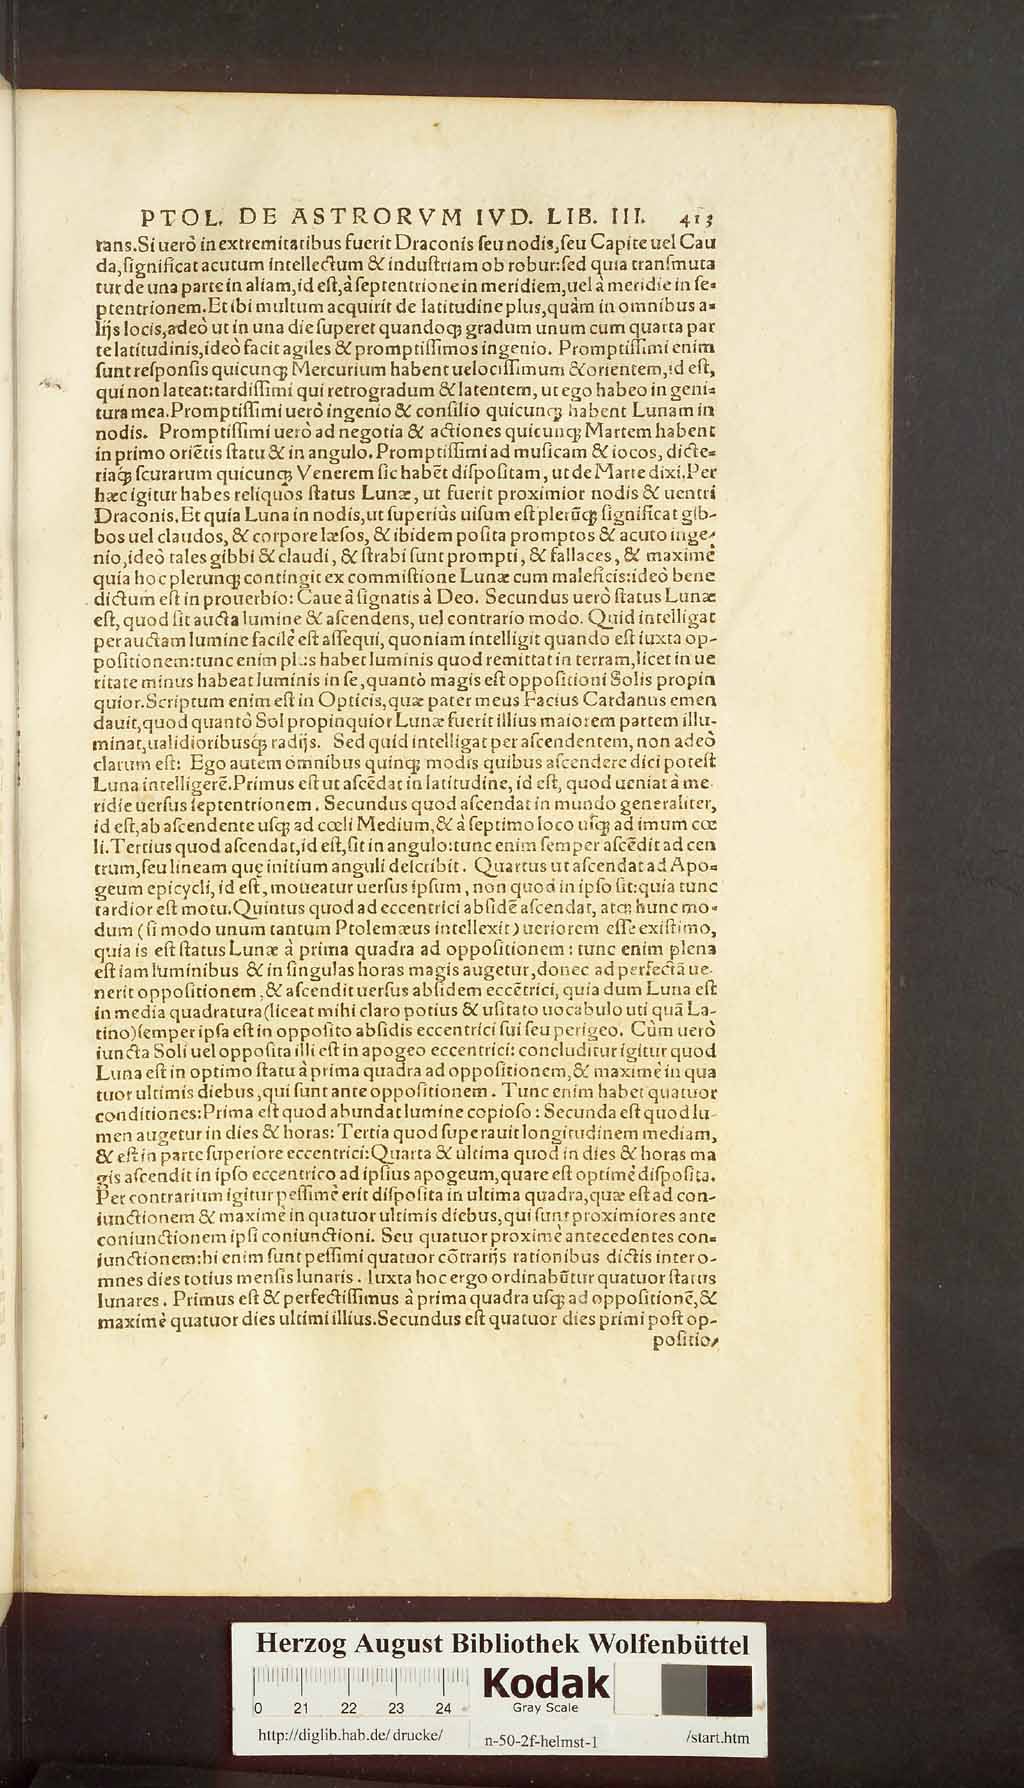 PTOL. DE ASTRORVM IVD. LIB. III. 413
trans. Si uerò in extremitatibus fuerit Draconis ſeu nodis, ſeu Capite uel Cau
da, ſignificat acutum intellectum & induſtriam ob robur: ſed quia tranſmuta
tur de una parte in aliam, id eſt, à ſeptentrione in meridiem, uel à meridie in ſe-
ptentrionem. Et ibi multum acquirit de latitudine plus, quàm in omnibus a-
lijs locis, adeò ut in una die ſuperet quandoqȝ gradum unum cum quarta par
te latitudinis, ideò facit agiles & promptiſſimos ingenio. Promptiſſimi enim
ſunt reſponſis quicunqȝ Mercurium habent uelociſſimum & orientem, id eſt,
qui non lateat: tardiſſimi qui retrogradum & latentem, ut ego habeo in geni-
tura mea. Promptiſſimi uerò ingenio & conſilio quicunqȝ habent Lunam in
nodis. Promptiſſimi uerò ad negotia & actiones quicunqȝ Martem habent
in primo oriētis ſtatu & in angulo. Promptiſſimi ad muſicam & iocos, dicte-
riaqȝ́ ſcurarum quicunqȝ Venerem ſic habēt diſpoſitam, ut de Marte dixi. Per
hæc igitur habes reliquos ſtatus Lunæ, ut fuerit proximior nodis & uentri
Draconis. Et quia Luna in nodis, ut ſuperiùs uiſum eſt plerūqȝ ſignificat gib-
bos uel claudos, & corpore læſos, & ibidem poſita promptos & acuto inge-
nio, ideò tales gibbi & claudi, & ſtrabi ſunt prompti, & fallaces, & maximè
quia hoc plerunqȝ contingit ex commiſtione Lunæ cum maleficis: ideò bene
dictum eſt in prouerbio: Caue à ſignatis à Deo. Secundus uerò ſtatus Lunæ
eſt, quod ſit aucta lumine & aſcendens, uel contrario modo. Quid intelligat
per auctam lumine facilè eſt aſſequi, quoniam intelligit quando eſt iuxta op-
poſitionem: tunc enim plus habet luminis quod remittat in terram, licet in ue
ritate minus habeat luminis in ſe, quantò magis eſt oppoſitioni Solis propin
quior. Scriptum enim eſt in Opticis, quæ pater meus Facius Cardanus emen
dauit, quod quantò Sol propinquior Lunæ fuerit illius maiorem partem illu-
minat, ualidioribusqȝ́ radijs. Sed quid intelligat per aſcendentem, non adeò
clarum eſt: Ego autem omnibus quinqȝ modis quibus aſcendere dici poteſt
Luna intelligerē. Primus eſt ut aſcēdat in latitudine, id eſt, quod ueniat à me
ridie uerſus ſeptentrionem. Secundus quod aſcendat in mundo generaliter,
id eſt, ab aſcendente uſqȝ ad cœli Medium, & à ſeptimo loco uſqȝ ad imum cœ
li. Tertius quod aſcendat, id eſt, ſit in angulo: tunc enim ſemper aſcēdit ad cen
trum, ſeu lineam quę initium anguli deſcribit. Quartus ut aſcendat ad Apo-
geum epicycli, id eſt, moueatur uerſus ipſum, non quod in ipſo ſit: quia tunc
tardior eſt motu. Quintus quod ad eccentrici abſidē aſcendat, atqȝ hunc mo-
dum (ſi modo unum tantum Ptolemæus intellexit) ueriorem eſſe exiſtimo,
quia is eſt ſtatus Lunæ à prima quadra ad oppoſitionem: tunc enim plena
eſt iam luminibus & in ſingulas horas magis augetur, donec ad perfectā ue
nerit oppoſitionem, & aſcendit uerſus abſidem eccētrici, quia dum Luna eſt
in media quadratura (liceat mihi claro potius & uſitato uocabulo uti quā La-
tino) ſemper ipſa eſt in oppoſito abſidis eccentrici ſui ſeu perigeo. Cùm uerò
iuncta Soli uel oppoſita illi eſt in apogeo eccentrici: concluditur igitur quod
Luna eſt in optimo ſtatu à prima quadra ad oppoſitionem, & maximè in qua
tuor ultimis diebus, qui ſunt ante oppoſitionem. Tunc enim habet quatuor
conditiones: Prima eſt quod abundat lumine copioſo: Secunda eſt quod lu-
men augetur in dies & horas: Tertia quod ſuperauit longitudinem mediam,
& eſt in parte ſuperiore eccentrici: Quarta & ultima quod in dies & horas ma
gis aſcendit in ipſo eccentrico ad ipſius apogeum, quare eſt optimè diſpoſita.
Per contrarium igitur peſſimè erit diſpoſita in ultima quadra, quæ eſt ad con-
iunctionem & maximè in quatuor ultimis diebus, qui ſunt proximiores ante
coniunctionem ipſi coniunctioni. Seu quatuor proximè antecedentes con-
iunctionem: hi enim ſunt peſſimi quatuor cōtrarijs rationibus dictis inter o-
mnes dies totius menſis lunaris. Iuxta hoc ergo ordinabūtur quatuor ſtatus
lunares. Primus eſt & perfectiſſimus à prima quadra uſqȝ ad oppoſitionē, &
maximè quatuor dies ultimi illius. Secundus eſt quatuor dies primi poſt op-
poſitio-
Herzog August Bibliothek Wolfenbüttel
0 21 22 23 24
Kodak
Gray Scale
http://diglib.hab.de/drucke/ n-50-2f-helmst-1 /start.htm